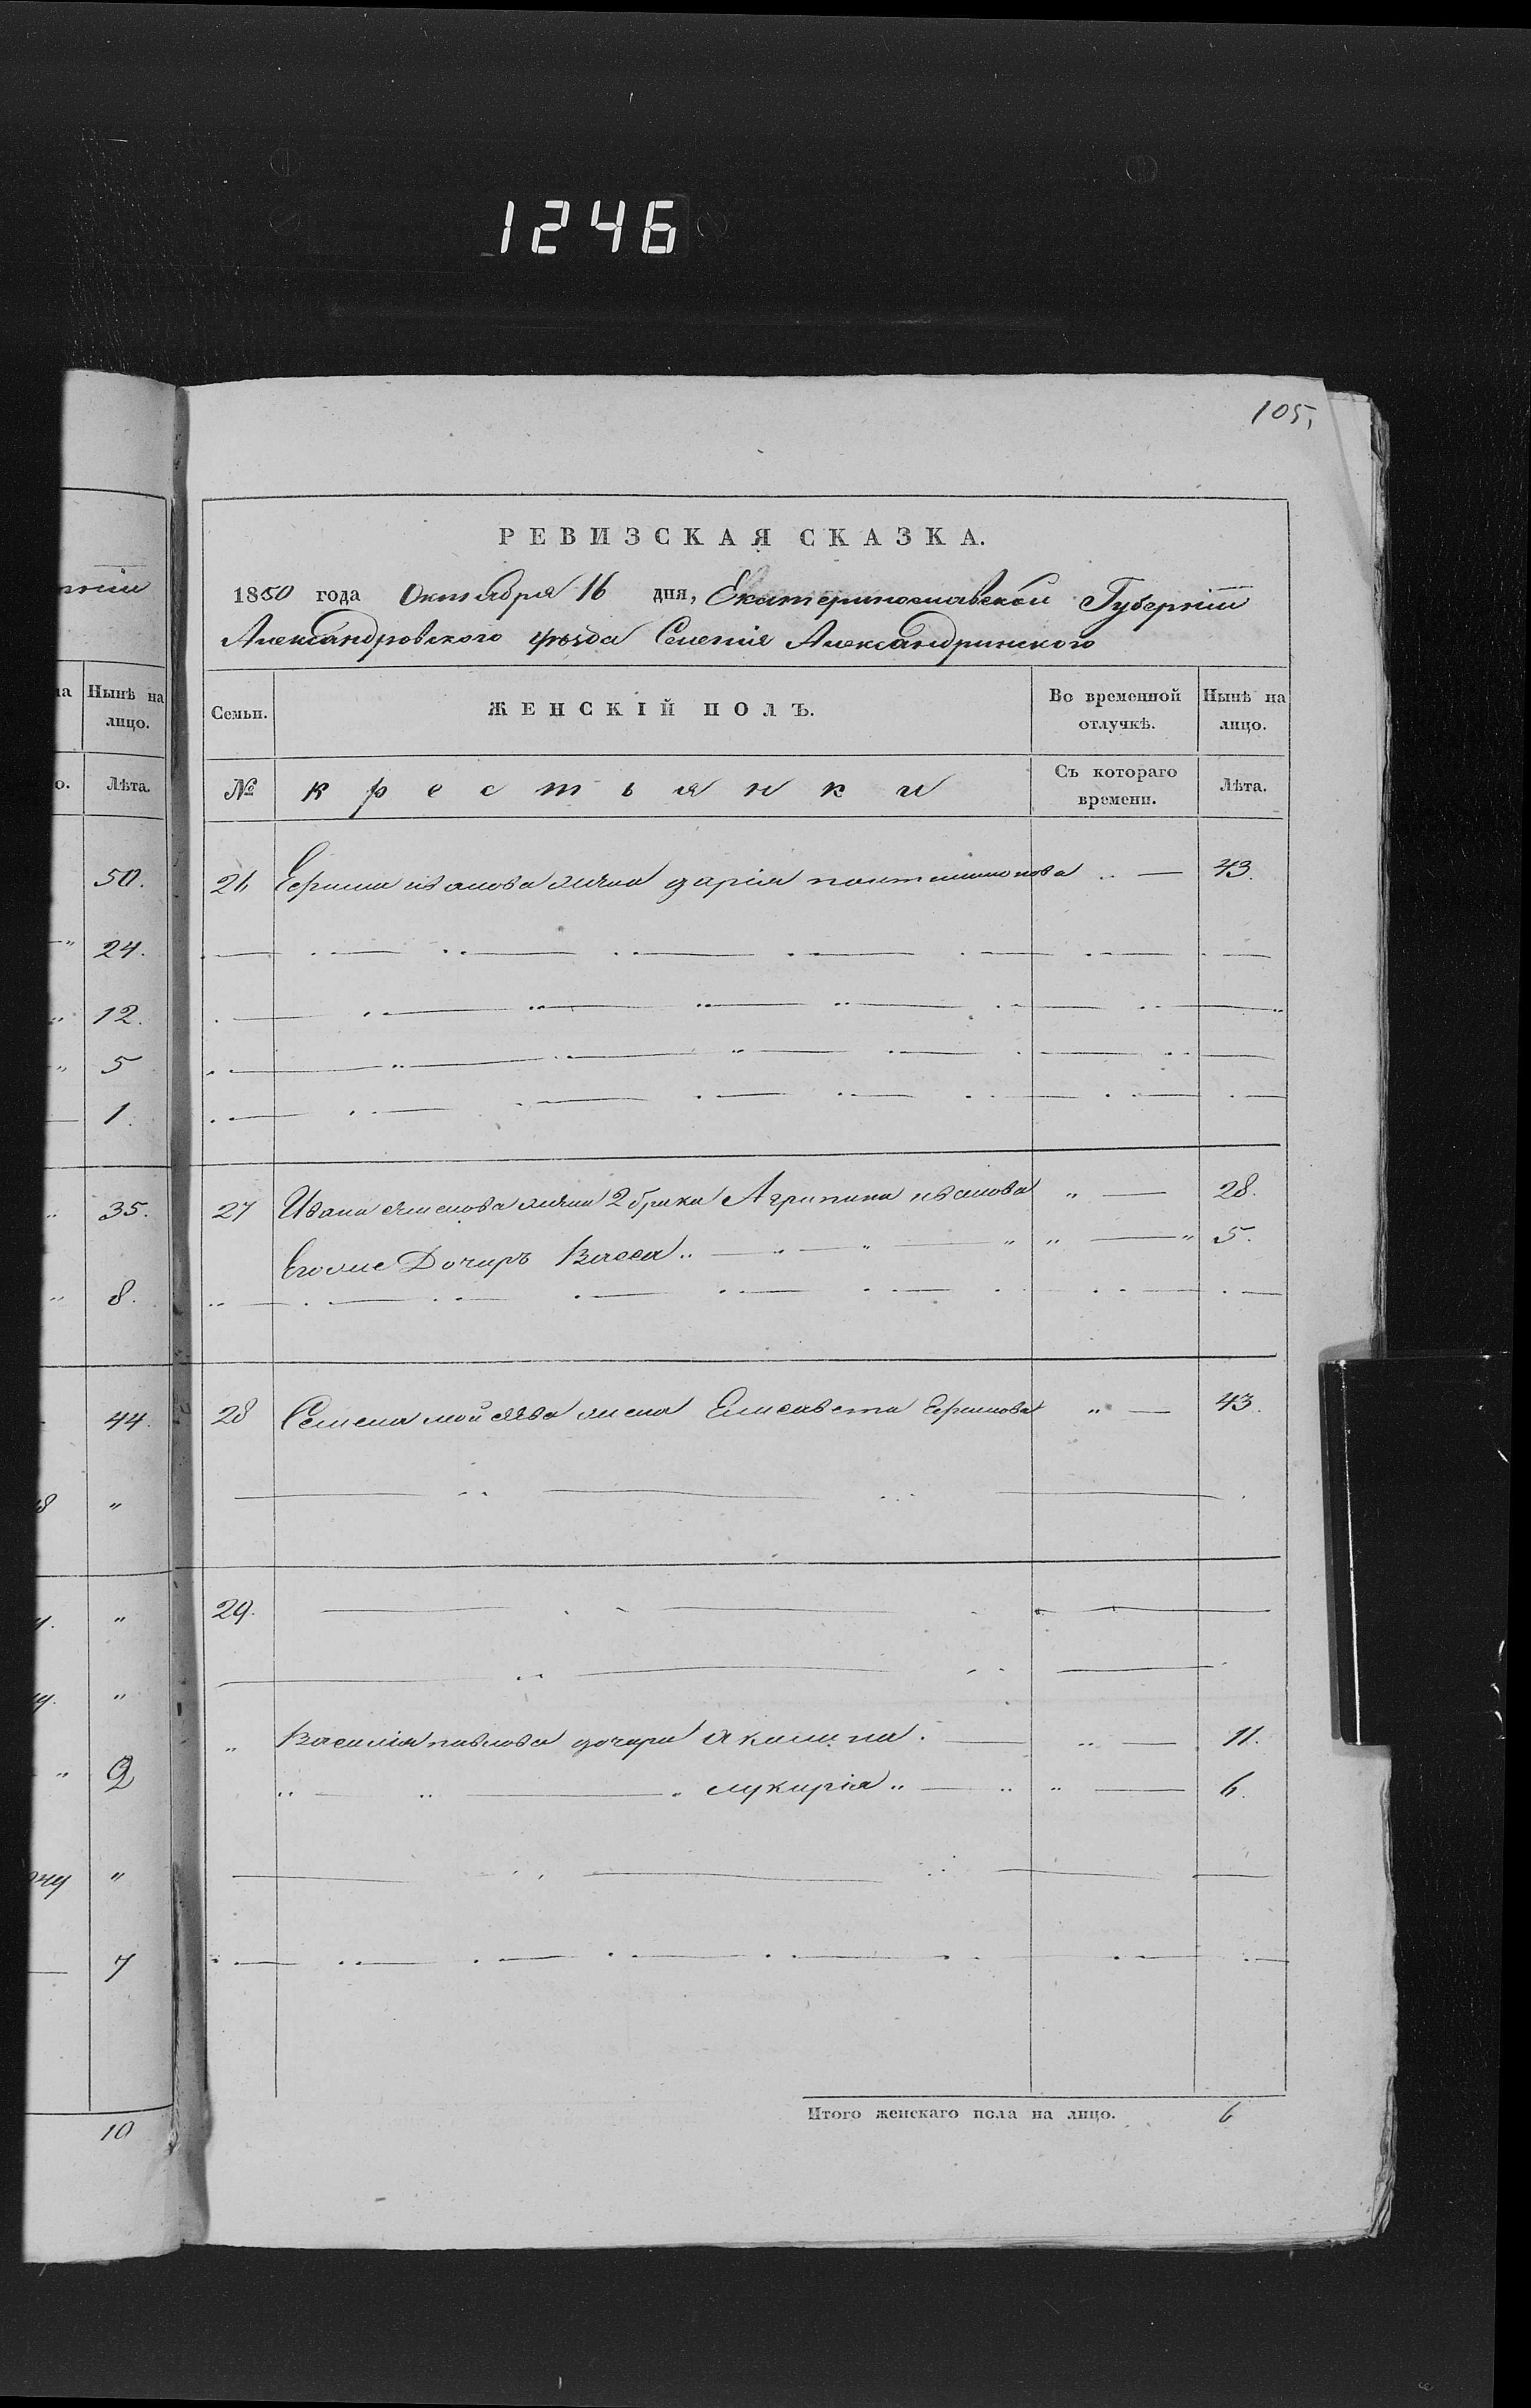 1246
105,
РЕВИЗСКАЯ СКАЗКА.
1850 года Октября 16 дня, Екатеринославской Губерніи
Александровского уѣзда Селенія Александринского
Семьи. ЖЕНСКІЙ ПОЛЪ. Во временной отлучкѣ. Нынѣ на лицо.
№ крестьянки Съ котораго времени. Лѣта.
26 Ефима иванова жина дарія пантилимонова „ — 43.
27 Ивана жина 2 брака Агрипина иванова „ — 28.
Егоже Дочиръ Васса „ — „ — „ — „ „ — „ 5.
28 Семена мойсѣева жена Елисавета Ефимова „ — 43.
29.
„ Василія павлова дочири Акилина. — „ — 11.
„ — „ — „ лукирія „ — „ „ — 6.
Итого женскаго пола на лицо. 6
рніи
на Нынѣ на лицо.
о. Лѣта.
50.
24.
12.
5
1.
35.
8.
44.
8 „
„
„
„ 2
ну „
7
10